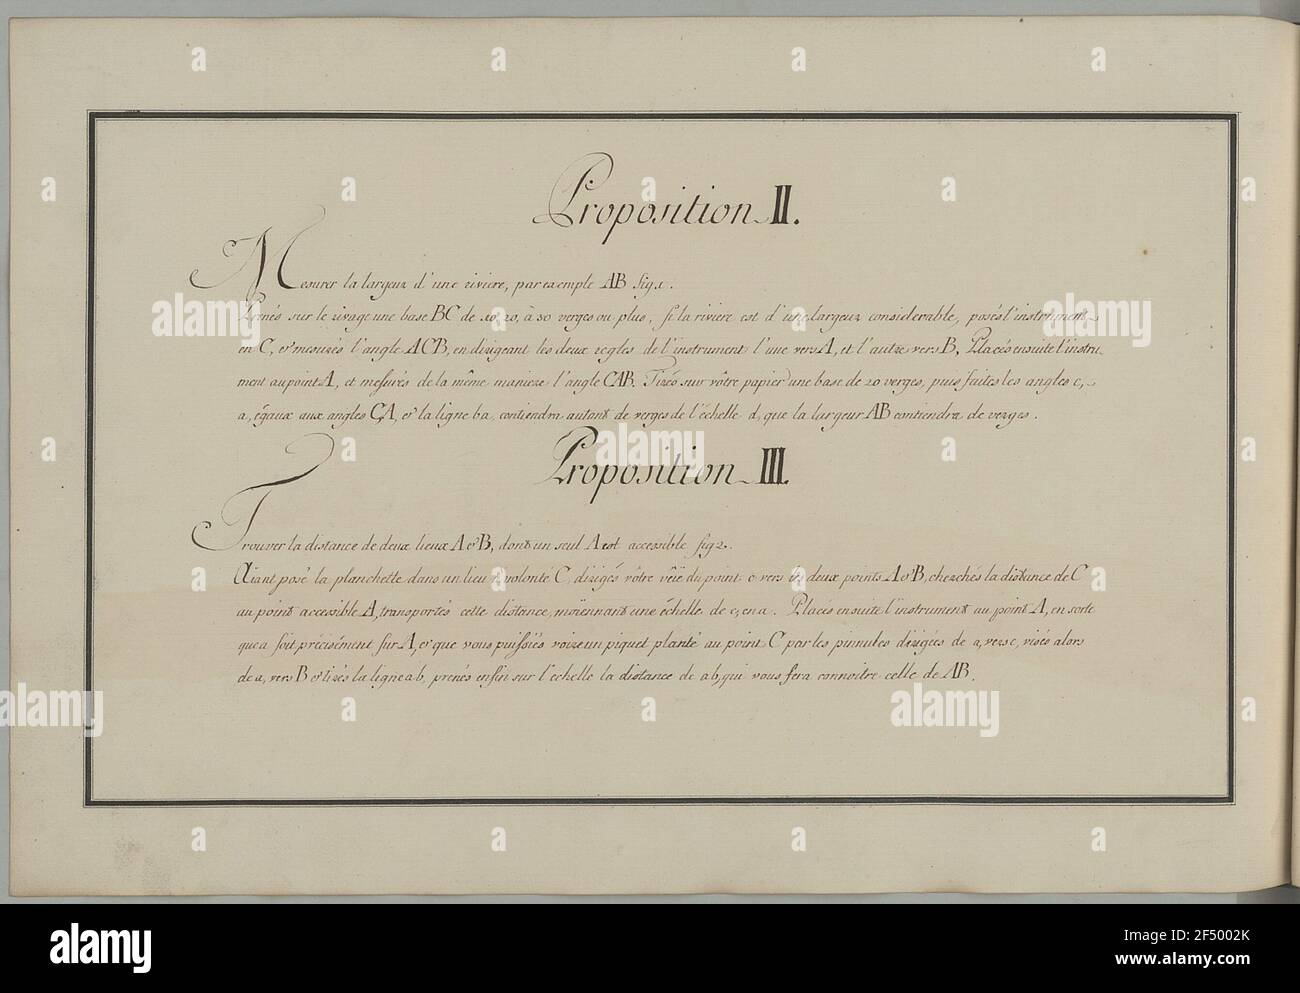 Proposition II.
Mesurer la largeur d'une riviere, par exemple AB fig.1.
Prenés sur le rivage une base BC de 10, 20, à 30 verges ou plus, si la riviere est d'une largeur considerable, posés l'instrument
en C, & mesurés l'angle ACB, en dirigeant les deux regles de l'instrument l'une vers A, et l'autre vers B, Placés ensuite l'instru-
ment au point A, et mesurés de la même maniere l'angle CAB. Tirés sur vôtre papier une base de 20 verges, puis faites les angles c,
a, égaux aux angles C,A, & la ligne ba, contiendra autant de verges de l'échelle d, que la largeur AB contiendra de verges.
Proposition III.
Trouver la distance de deux lieux A & B, dont un seul A est accessible fig 2.
Aiant posé la planchette dans un lieu à volonté C, dirigés vôtre vüe du point c vers les deux points A & B, cherchés la distance de C
au point accessible A, transportés cette distance, moïennant une échelle de c, en a. Placés ensuite l'instrument au point A, en sorte
que a soit précisément sur A, & que vous puissiés voir un piquet planté au point C par les pinnules dirigées de a, vers c, visés alors
de a, vers B & tirés la ligne ab, prenés enfin sur l'echelle la distance de ab, qui vous fera connoitre celle de AB.
alamy
alamy
alamy
Image ID: 2F5002K
www.alamy.com